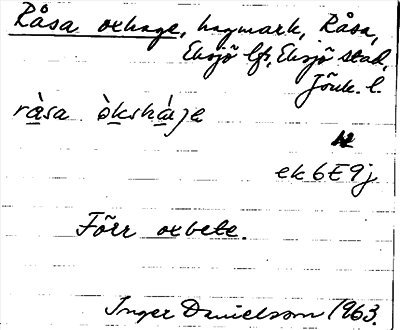 Råsa oxhage, hagmark, Råsa,
Eksjö lfs, Eksjö stad,
Jönk. l.
ràsa òkshàje
ek 6E9j
Förr oxbete.
Inger Danielsson 1963.